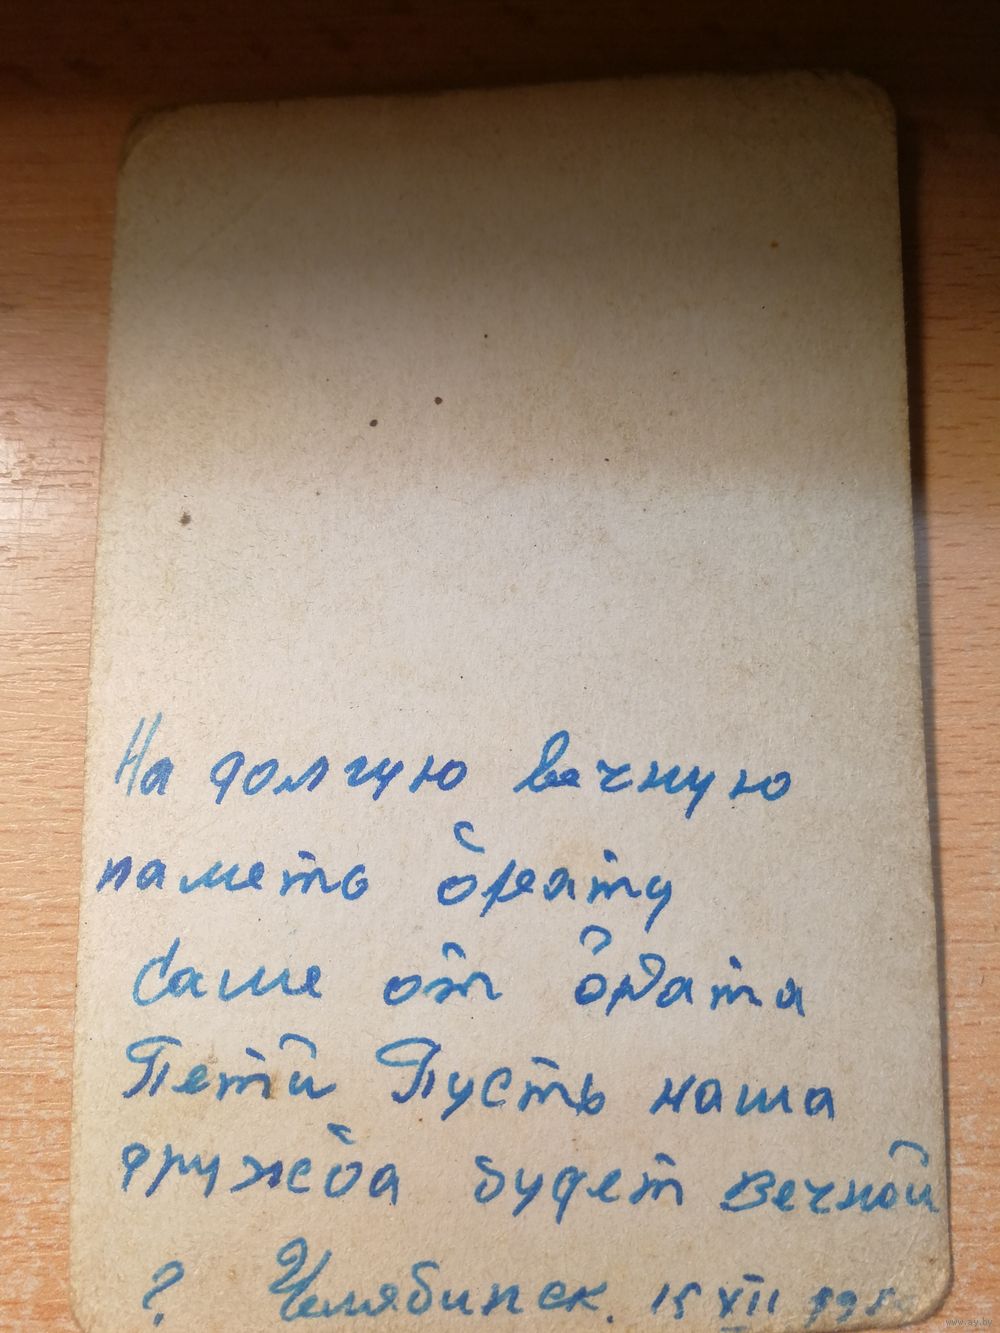 На долгую вечную
паметь брату
Саше от брата
Пети Пусть наша
дружба будет вечной
? Челябинск. 15 XII
www.ay.by